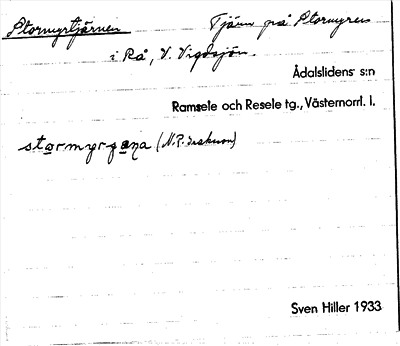 Stormyrtjärnen Tjärn på Stormyren
i Rå, V. Vigdsjön.
Ådalslidens s:n
Ramsele och Resele tg., Västernorrl. l.
(N.P. Isaksson)
Sven Hiller 1933